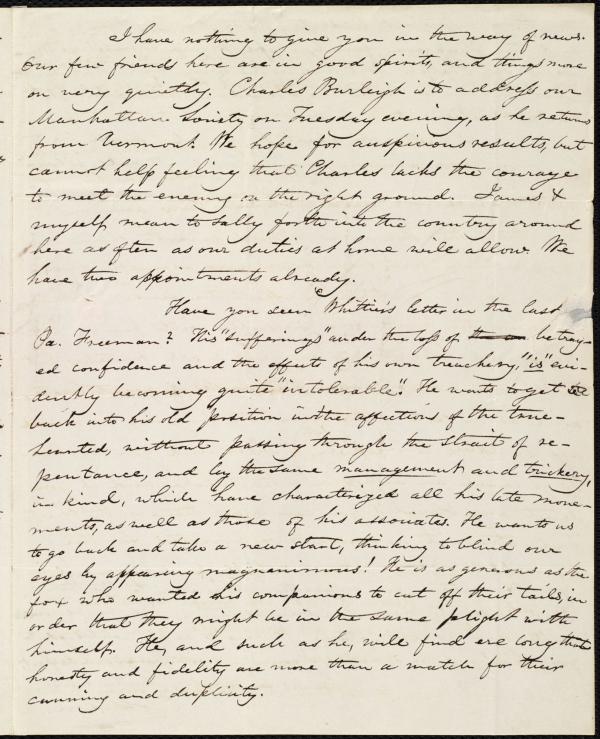 I have nothing to give you in the way of news.
Our few friends here are in good spirits, and things move
on very quietly. Charles Burleigh is to address our
Manhattan Society on Tuesday evening, as he returns
from Vermont. We hope for auspicious results, but
cannot help feeling that Charles lacks the courage
to meet the enemy on the right ground. James &
myself mean to sally forth into the country around
here as often as our duties at home will allow. We
have two appointments already.
Have you seen Whittier's letter in the last
Pa. Freeman? His "sufferings" under the loss of betray-
ed confidence and the effects of his own treachery, "is" evi-
dently becoming quite "intolerable". He wants to get
back into his old position in the affections of the true-
hearted, without passing through the strait of re-
pentance, and by the same management and trickery,
in kind, which have characterized all his late move-
ments, as well as those of his associates. He wants us
to go back and take a new start, thinking to blind our
eyes by appearing magnanimous! He is as generous as the
fox who wanted his companions to cut off their tails, in
order that they might be in the same plight with
himself. He, and such as he, will find ere long that
honesty and fidelity are more than a match for their
cunning and duplicity.